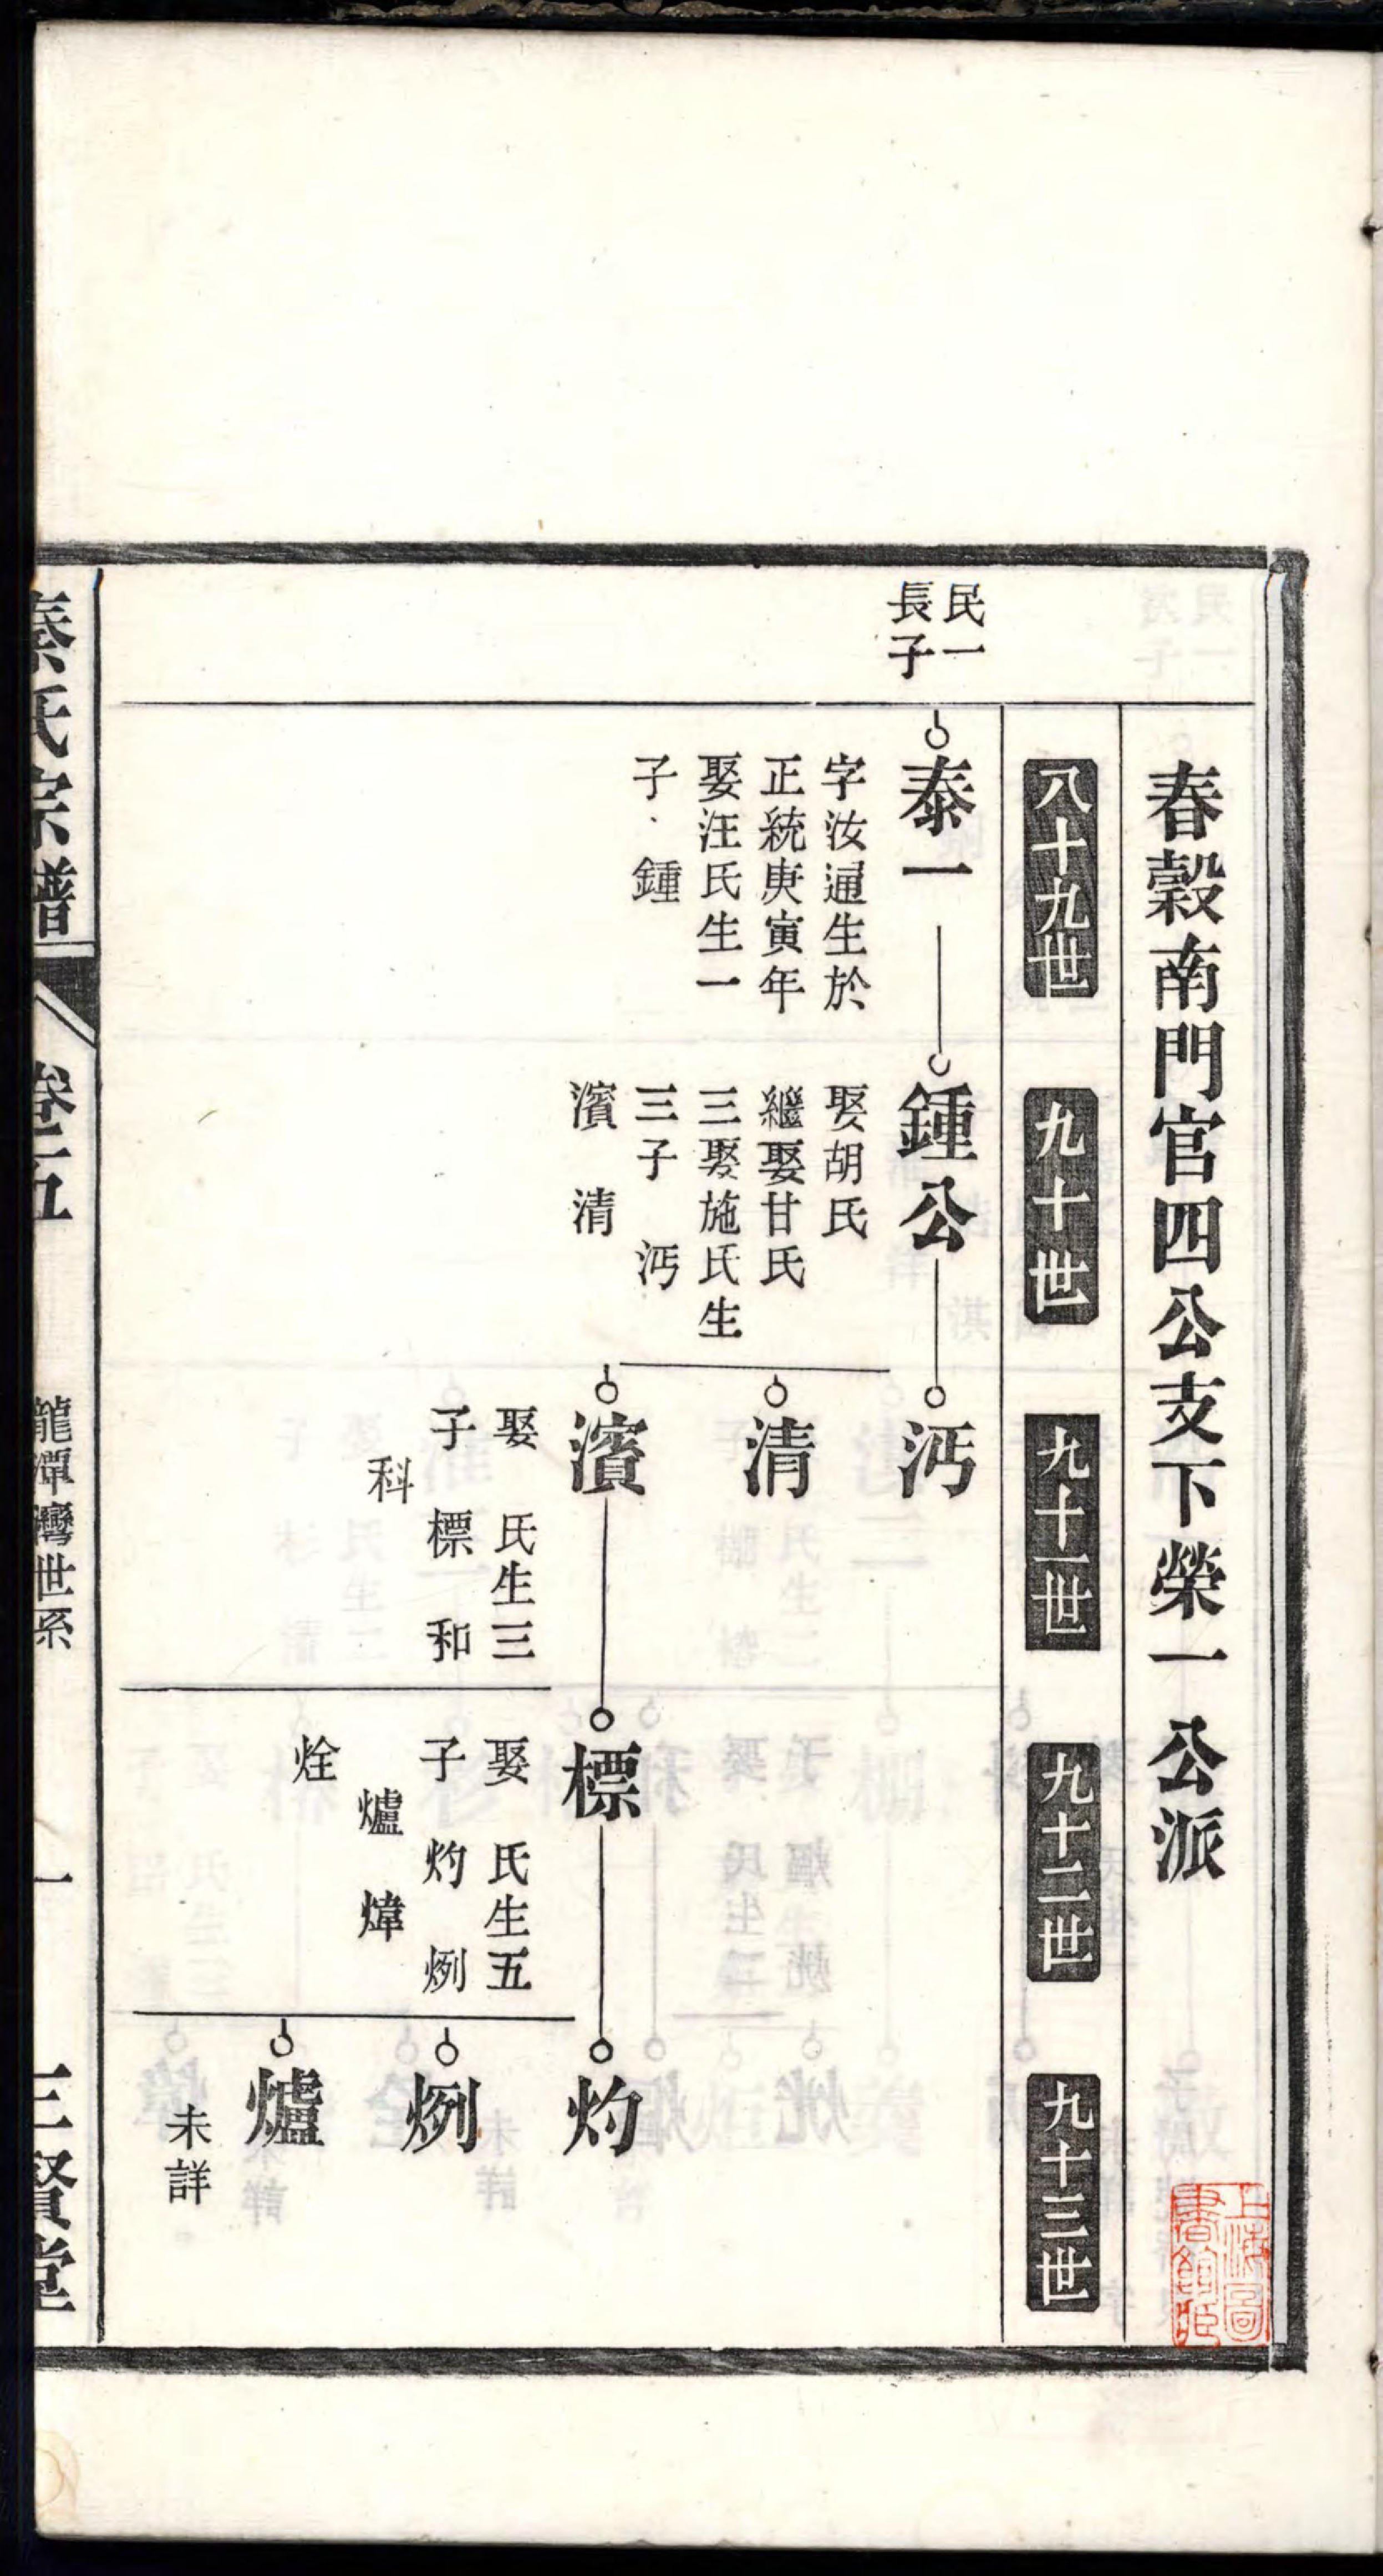 春穀南門官四公支下榮一公派
八十九世
九十世
九十一世
九十二世
九十三世
民一
長子
泰一
字汝通生於
正統庚寅年
娶汪氏生一
子鍾
鍾公
娶胡氏
繼娶甘氏
三娶施氏生
三子 沔
濱 清
沔
清
濱
娶 氏生三
子 標 和
科
標
娶 氏生五
子 灼 烔
爐 煒
烇
灼
烈
爐
未詳
秦氏宗譜
卷五
龍潭灣世系
一
三賢堂
上海圖
書館藏